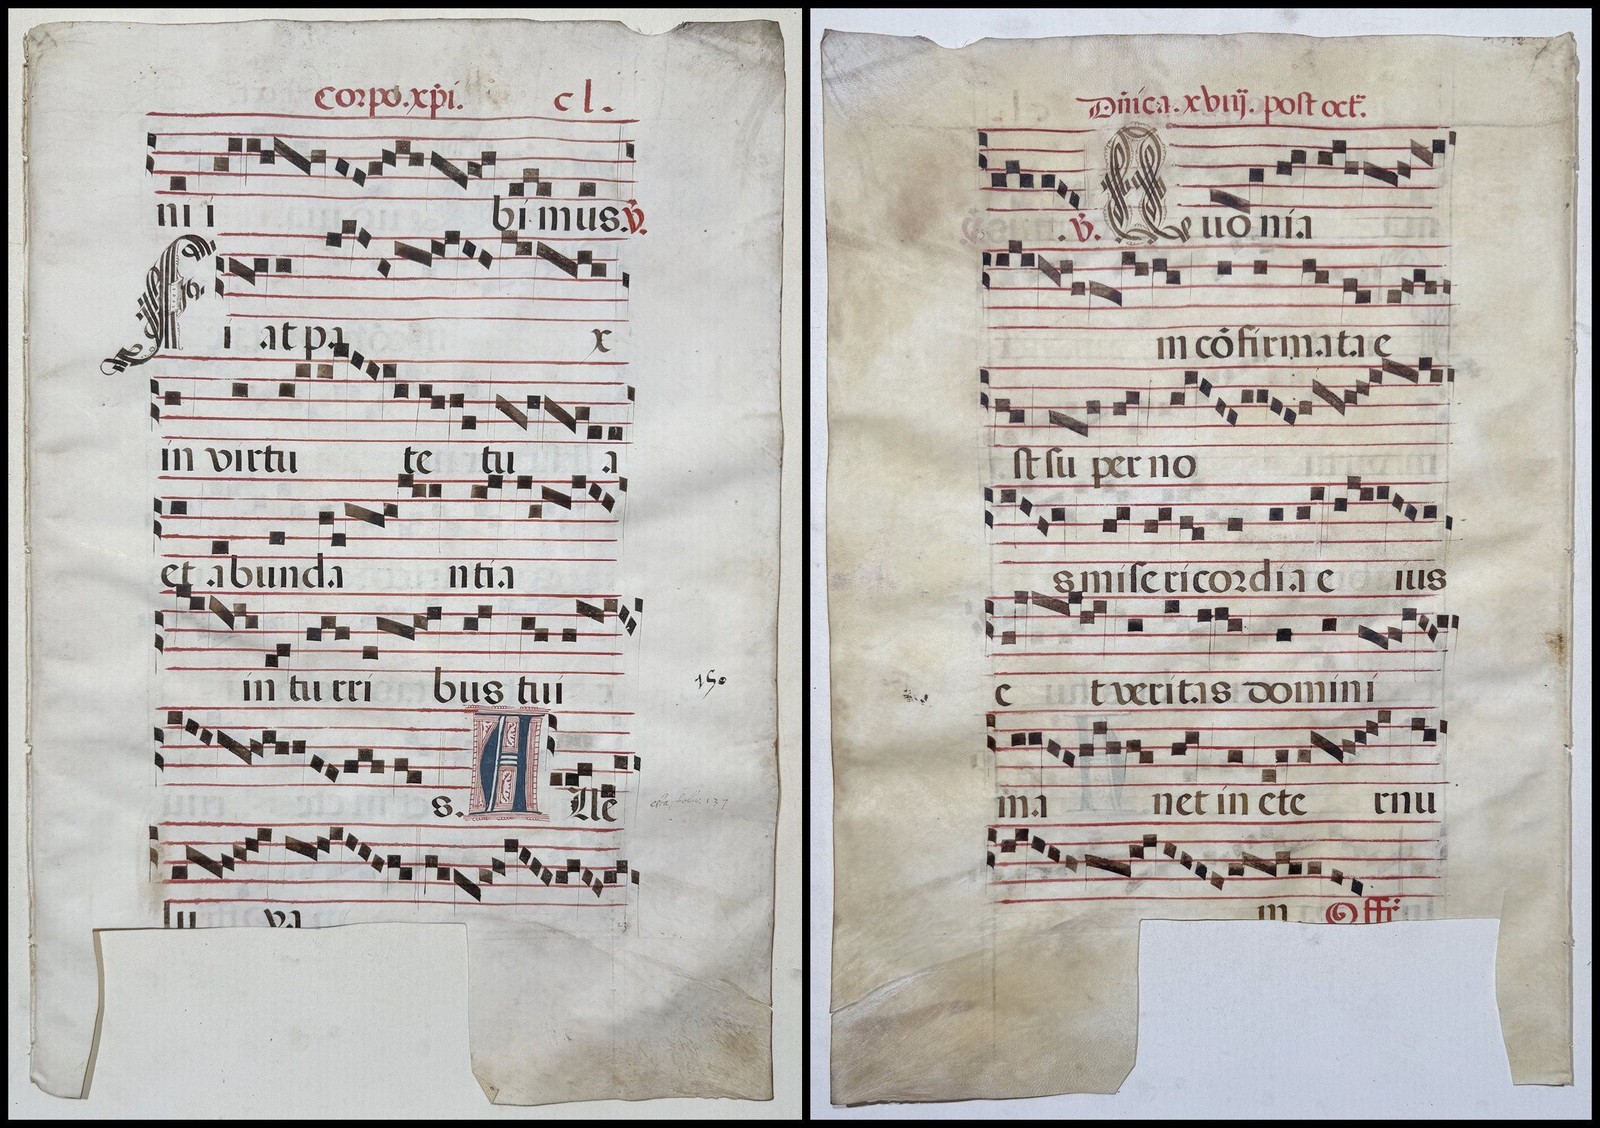 Corpo.xp̄i. cl.
ni i bi mus. v̄.
Fi at pa x
in virtu te tu a
et abunda ntia
in turri bus tui
150
s. Alle
lu ya
Dn̄ica.xviij. post oct̄.
.v̄. Quo nia
m cōfirmata e
st su per no
s misericordia e ius
e t veritas domini
ma net in ete rnu
m Offr̄